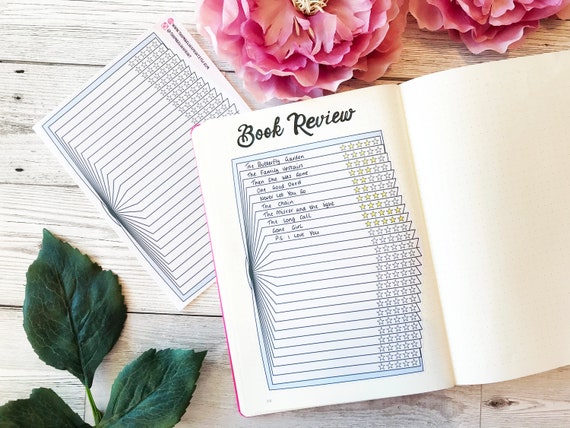 Book Review
The Butterfly Garden
The Family Upstairs
Then She Was Gone
One Good Deed
Never Let You Go
The Chain
The Mister and the
The Long Call
Gone Girl
P.S. I Love You